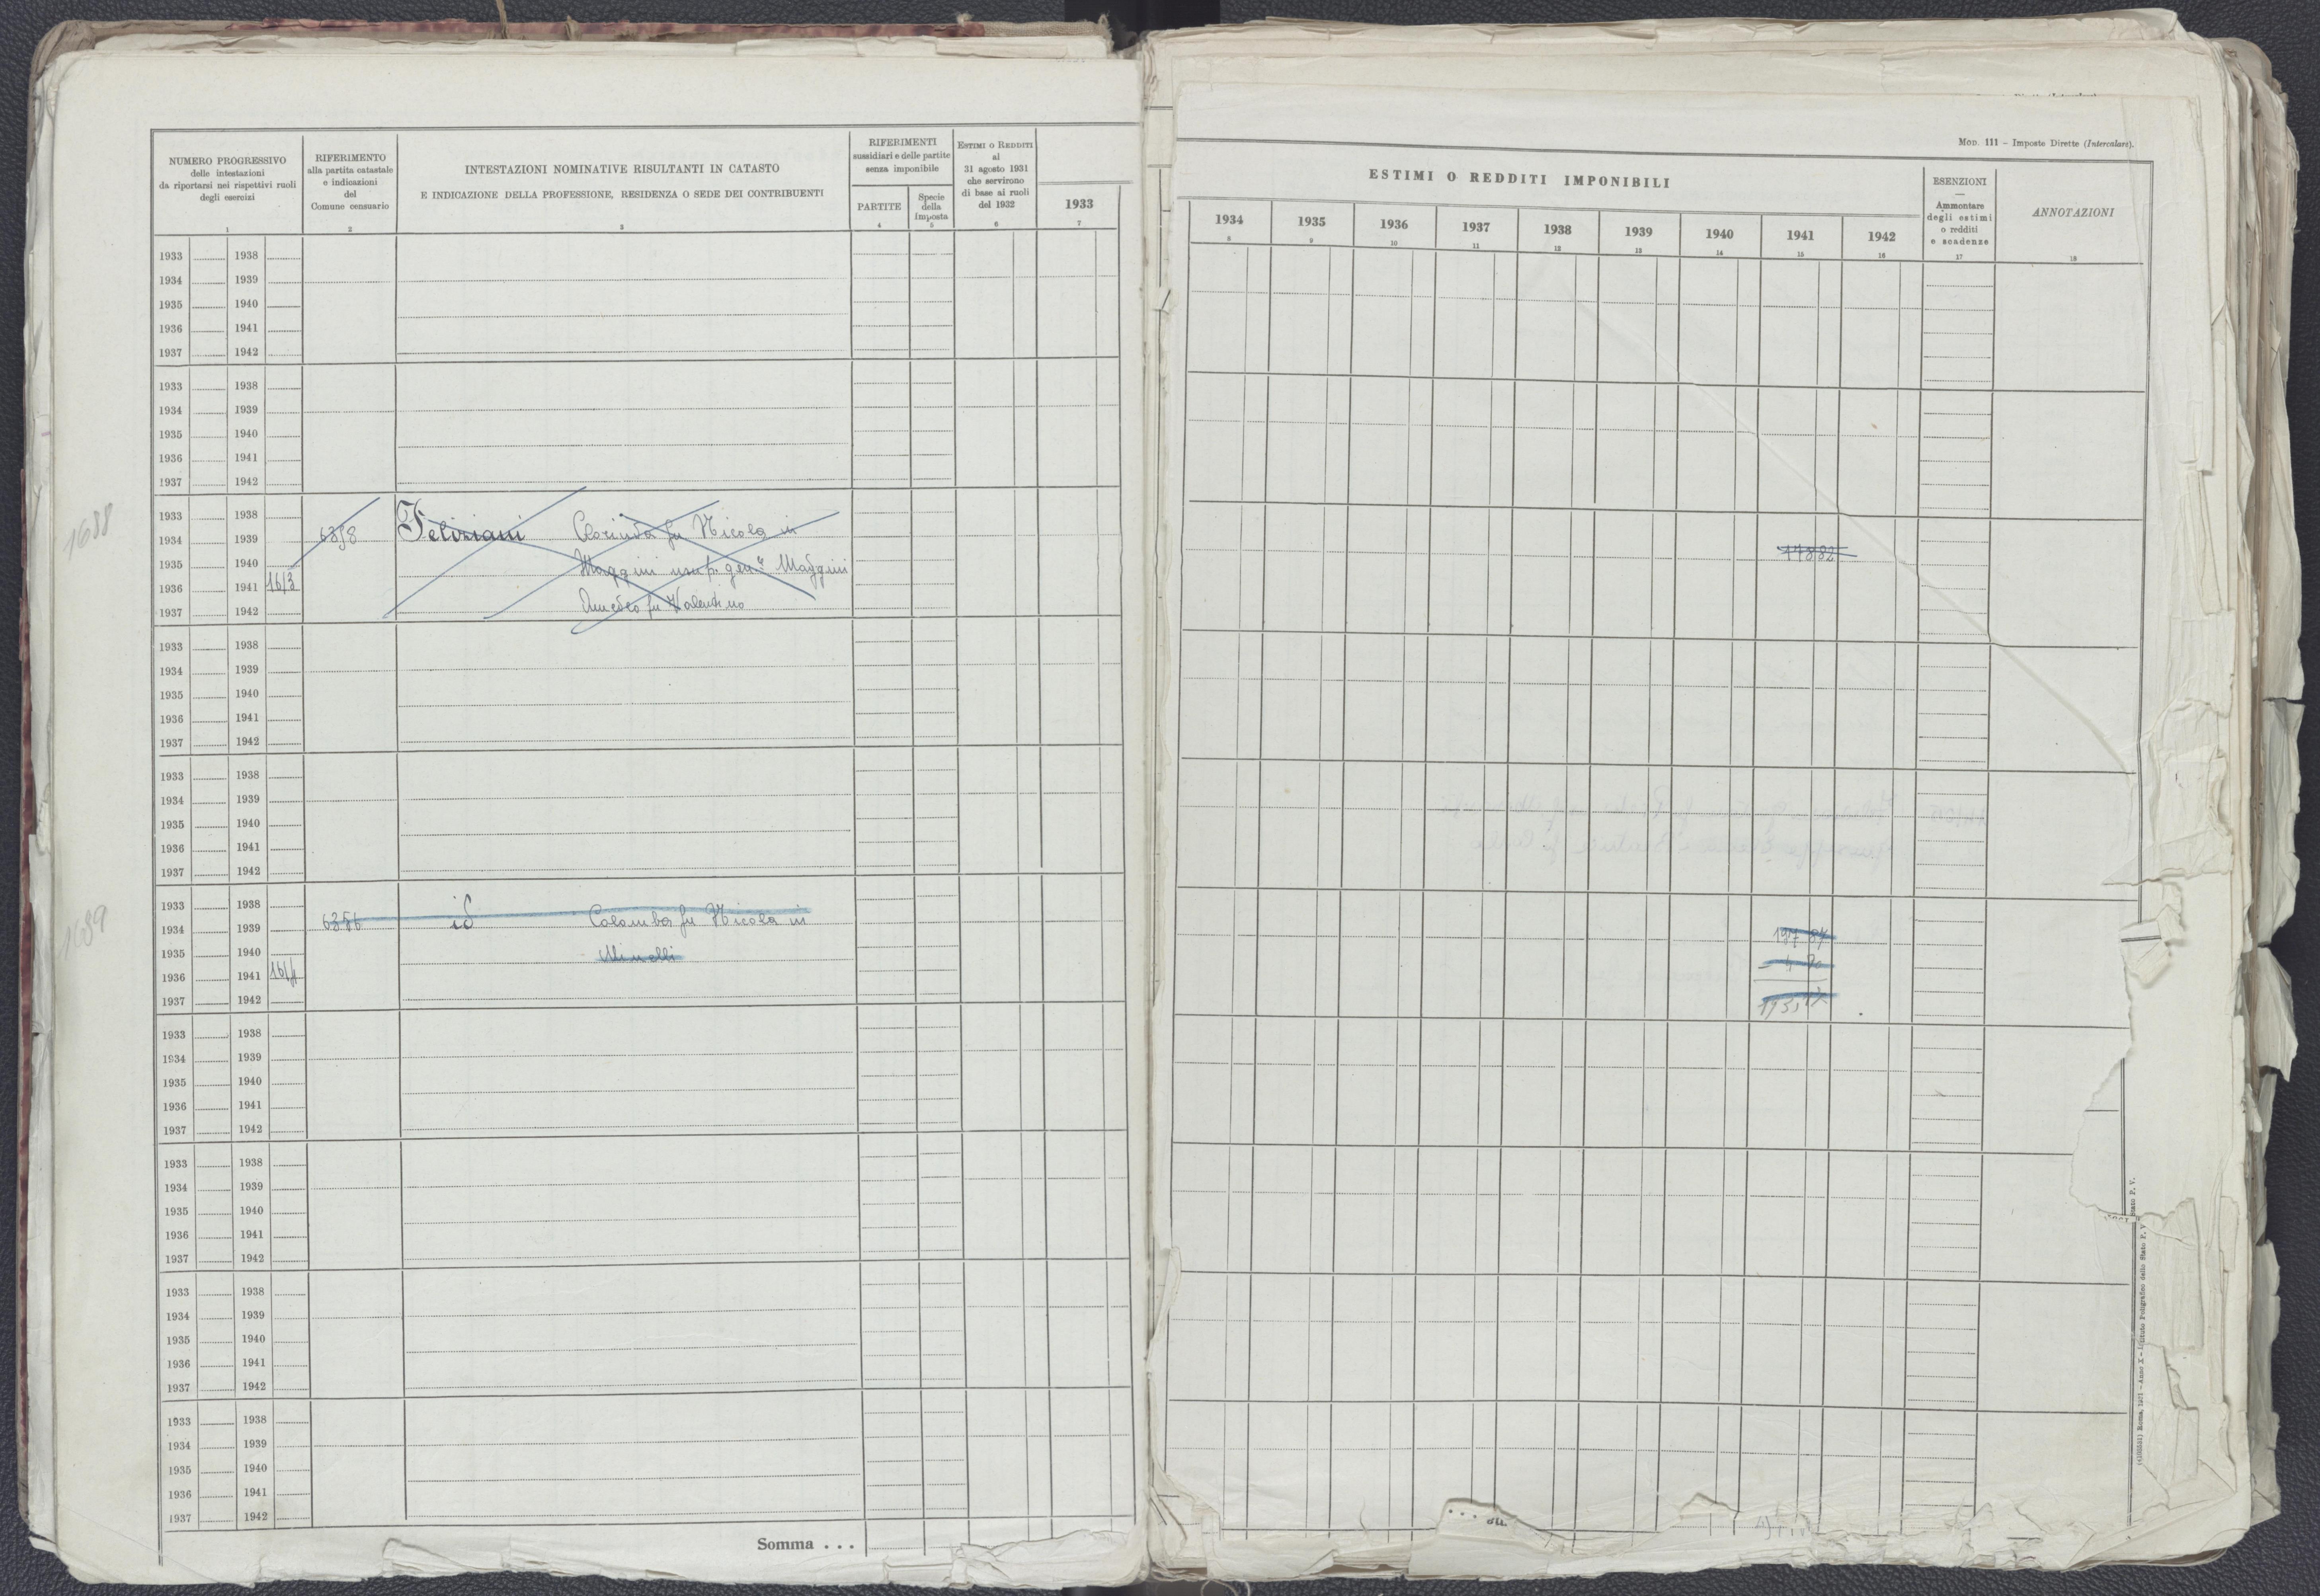 NUMERO PROGRESSIVO
delle intestazioni
da riportarsi nei rispettivi ruoli
degli esercizi
1
RIFERIMENTO
alla partita catastale
e indicazioni
del
Comune censuario
2
INTESTAZIONI NOMINATIVE RISULTANTI IN CATASTO
E INDICAZIONE DELLA PROFESSIONE, RESIDENZA O SEDE DEI CONTRIBUENTI
3
RIFERIMENTI
sussidiari e delle partite
senza imponibile
PARTITE
4
Specie
della
imposta
5
ESTIMI O REDDITI
al
31 agosto 1931
che servirono
di base ai ruoli
del 1932
6
1933
7
MOD. 111 – Imposte Dirette (Intercalare).
ESTIMI O REDDITI IMPONIBILI
1934 1935 1936 1937 1938 1939 1940 1941 1942
8 9 10 11 12 13 14 15 16
ESENZIONI
—
Ammontare
degli estimi
o redditi
e scadenze
17
ANNOTAZIONI
18
1933 1938
1934 1939
1935 1940
1936 1941
1937 1942
1933 1938
1934 1939
1935 1940
1936 1941
1937 1942
1688
1933 1938
1934 1939 6358 Feliziani Clorinda fu Nicola in
1935 1940 Maggini usuf. gen.e Maggini
1936 1941 16/3
1937 1942 Amedeo fu Valentino
178 82
1933 1938
1934 1939
1935 1940
1936 1941
1937 1942
1933 1938
1934 1939
1935 1940
1936 1941
1937 1942
1689
1933 1938
1934 1939 6356 id Colomba fu Nicola in
1935 1940 Minelli
1936 1941 16/4
1937 1942
197 87
1933 1938
1934 1939
1935 1940
1936 1941
1937 1942
1933 1938
1934 1939
1935 1940
1936 1941
1937 1942
1933 1938
1934 1939
1935 1940
1936 1941
1937 1942
1933 1938
1934 1939
1935 1940
1936 1941
1937 1942
Somma . . .